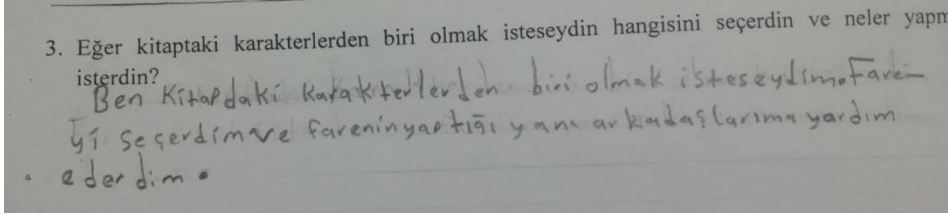 3. Eğer kitaptaki karakterlerden biri olmak isteseydin hangisini seçerdin ve neler yapm
isterdin?
Ben Kitapdaki Karakterlerden biri olmak isteseydim Fare-
yi seçerdim ve fareninyaptığı yanı arkadaşlarıma yardım
ederdim.